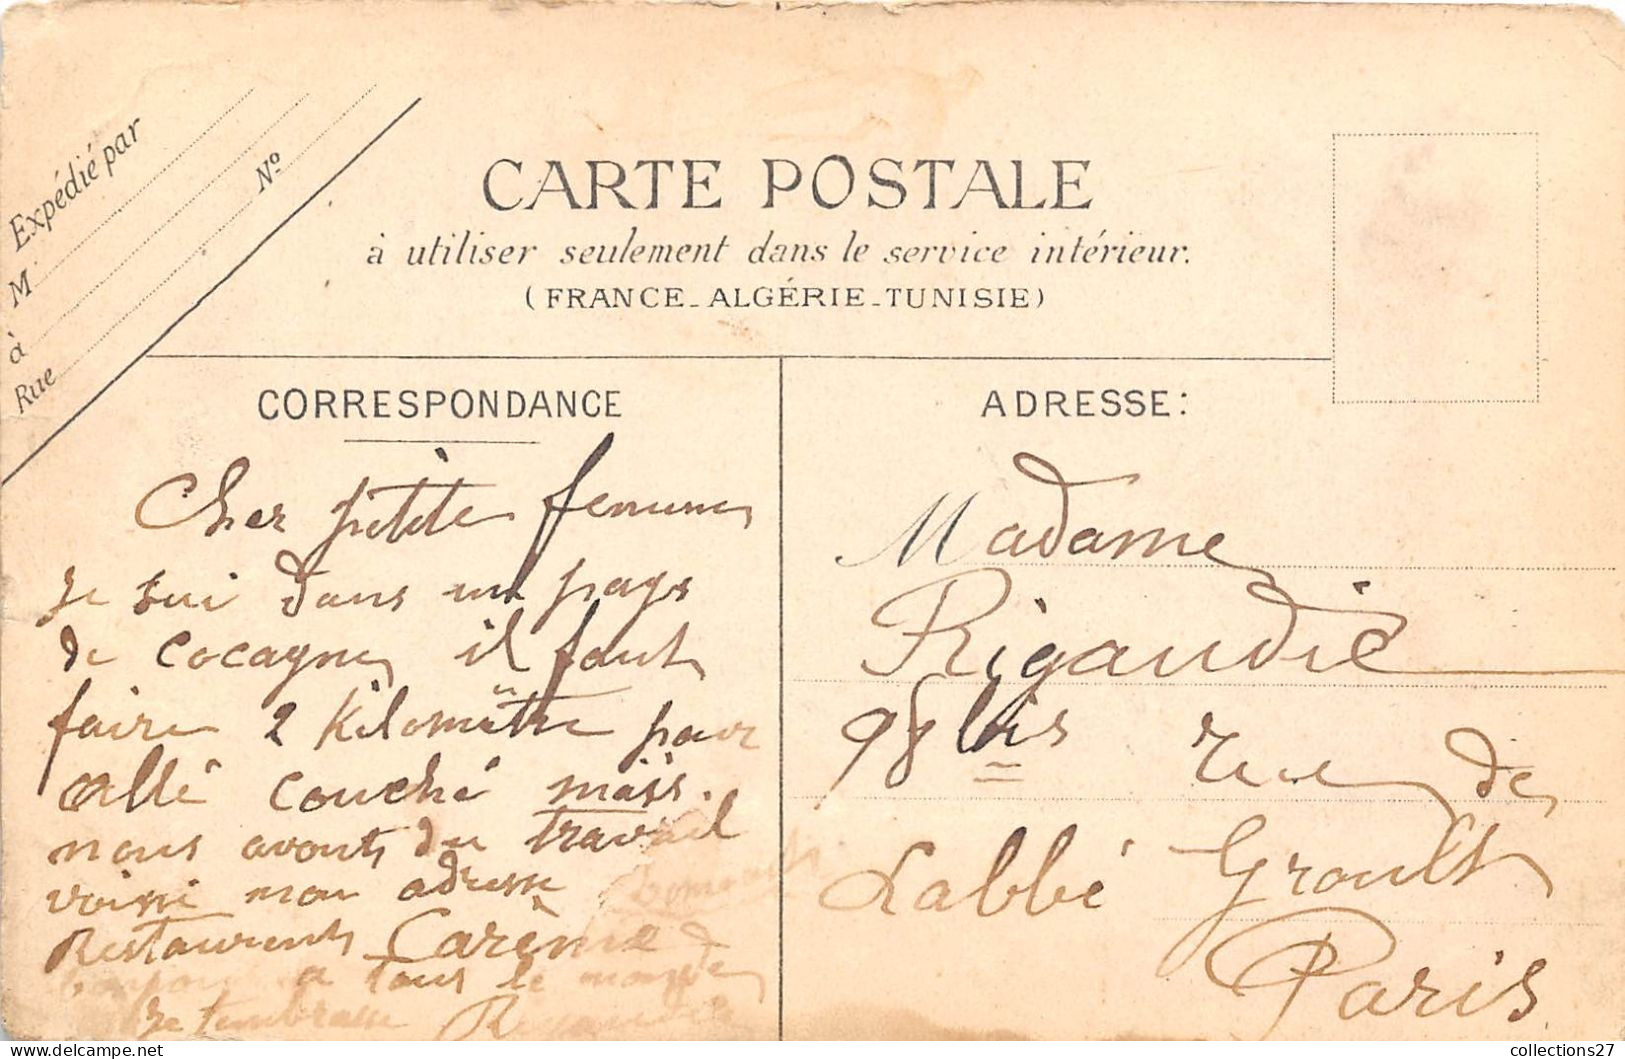 Expédié par
M
à
Rue
Nº
CARTE POSTALE
à utiliser seulement dans le service intérieur.
(FRANCE-ALGÉRIE-TUNISIE)
CORRESPONDANCE
Cher petite femme
Je sui dans un pays
de cocagne il faut
faire 2 kilomètre pour
allé couché mais.
nous avont du travail
voissi mon adresse
Restaurent Carème
a tous le monde
Je tembrasse
ADRESSE:
Madame
Rigaudie
98 bis rue de
Labbé Groult
Paris
collections27